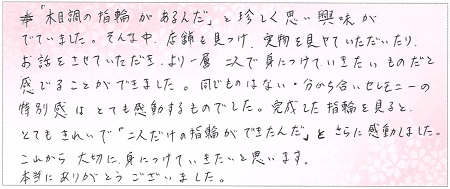 「木目調の指輪があるんだ」と珍しく思い興味が
でていました。そんな中、店舗を見つけ、実物を見せていただいたり、
お話をさせていただき、より一層 二人で身につけていきたいものだと
感じることができました。同じものはない・分かち合いセレモニーの
特別感はとても感動するものでした。完成した指輪を見ると、
とてもきれいで「二人だけの指輪ができたんだ」とさらに感動しました。
これから大切に身につけていきたいと思います。
本当にありがとうございました。